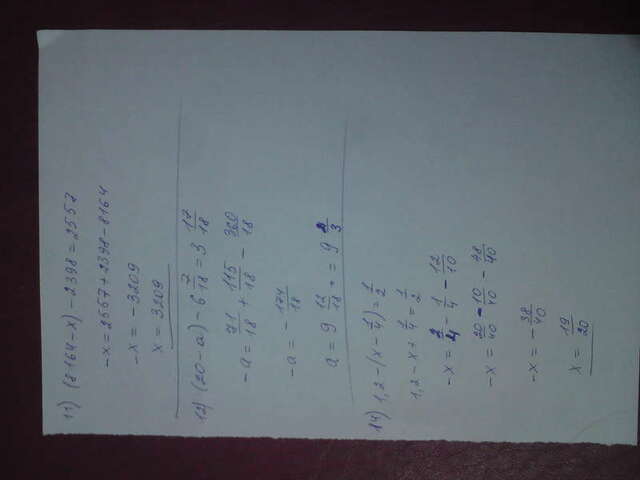 11) (8164-x)-2398=2557
-x=2557+2398-8164
-x = -3209
x = 3209
12) (20-a)-6 7/18=3 17/18
-a= 71/18 + 115/18 - 360/18
-a = - 174/18
a = 9 12/18 = 9 2/3
14) 1,2-(x-1/4)=1/2
1,2-x+1/4=1/2
-x= 2/4 - 1/4 - 12/10
-x= 20/40 - 10/40 - 48/40
-x= - 38/40
x = 19/20